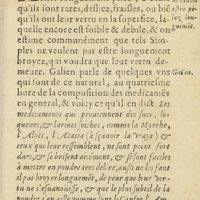 qu'ils sont rares, desliez, fraisles, ou biẽ
qu'ils ont leur vertu en la superfice, la-
quelle encore est foible & debile, & on
estime communément que tels Sim-
ples ne veulent pas estre longuement
broyez, qui voudra que leur vertu de-
meure. Galien parle de quelques vns
qui sont de ce naturel, au quatriesme
liure de la composition des medicamés
en general, & voicy ce qu'il en dict Les
medicamens qui prouiennent des sucs, li-
queurs, & larmes seiches, comme la Myrrhe,
l'Aloës, l'Acacia (à sçauoir la vraye) &
ceux qui leur ressemblent, ne sont point fort
durs, & se brisent aisément, & si sont faciles
à mettre en poudre tres deliee, aussi ne les faut
il pas broyer longuemét, de peur que leur ver-
tu ne s'esuanouïsse, & que le plus subtil de la
estre pi-
lez lon-
guemẽt.
Galien.